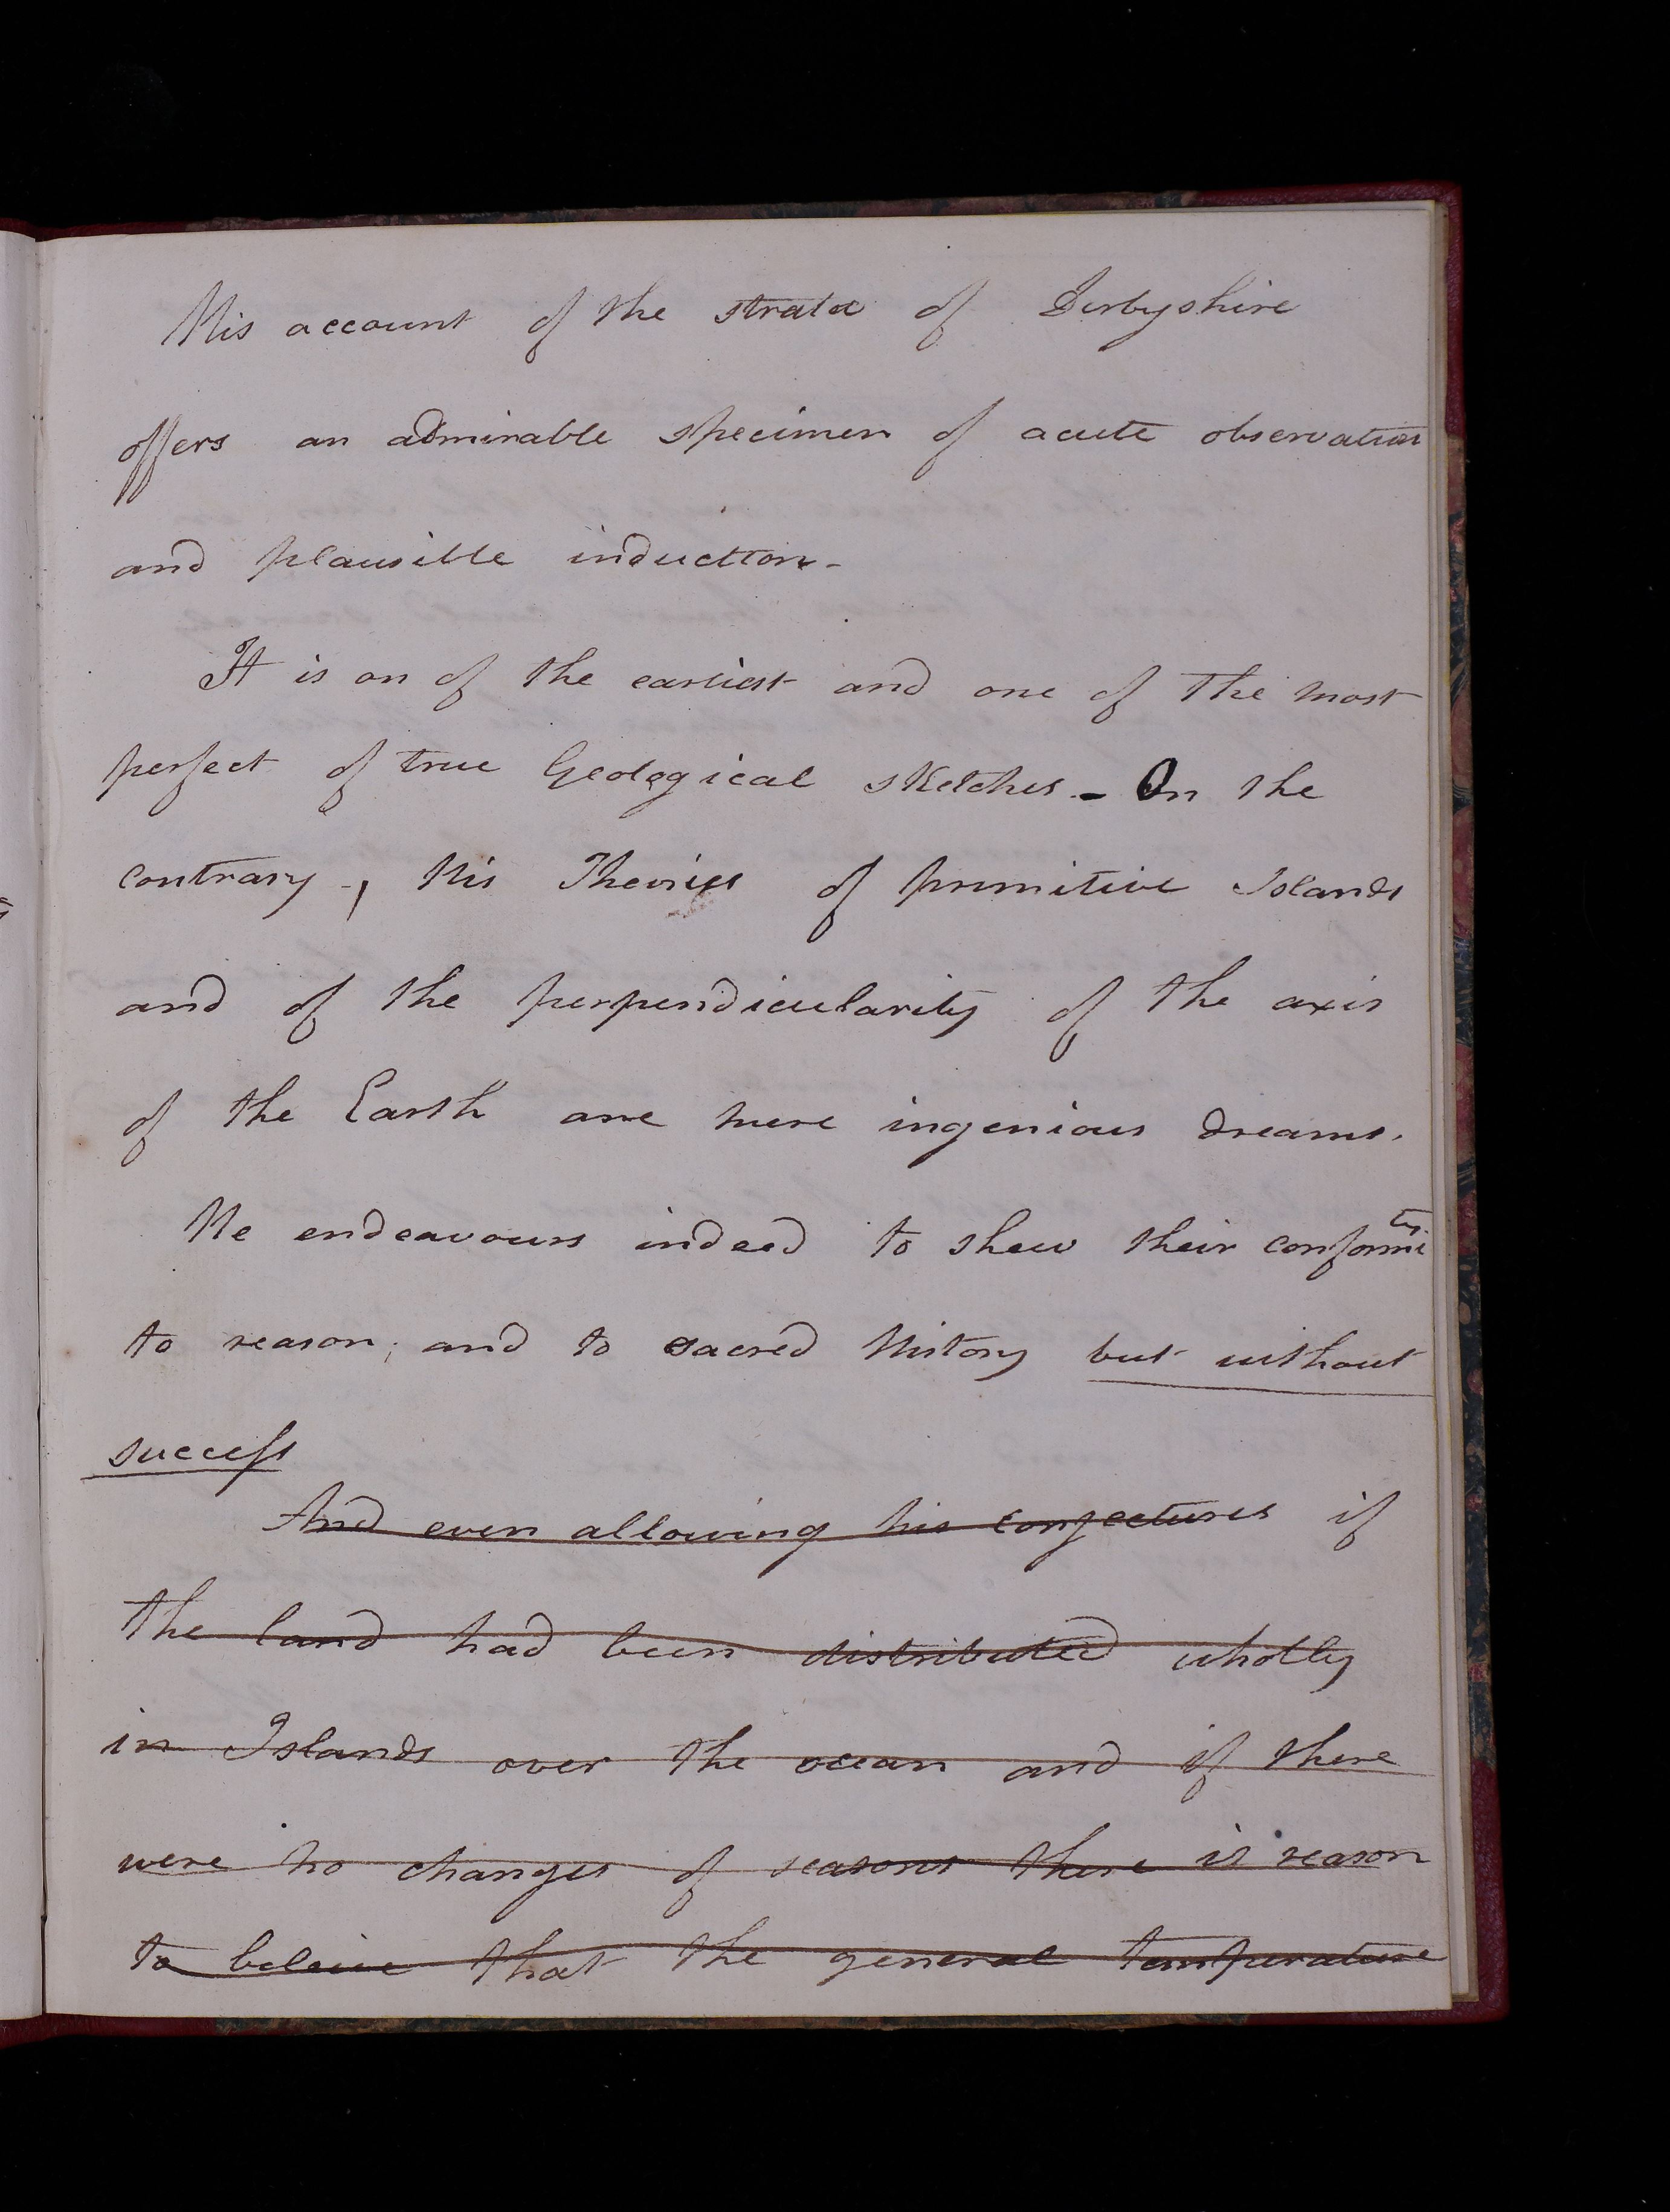 His account of the strata of Derbyshire
offers an admirable specimen of acute observation
and plausible induction -
It is on of the earliest and one of the most
perfect of true Geological sketches - On the
contrary -, His Theories of primitive Islands
and of the perpendicularity of the axis
of the Earth are mere ingenious dreams.
He endeavours indeed to shew their conformity
to reason; and to sacred History but without
success
And even allowing his conjectures if
the land had been distributed wholly
in Islands over the ocean and if there
were no changes of seasons there is reason
to beleive that the general temperature